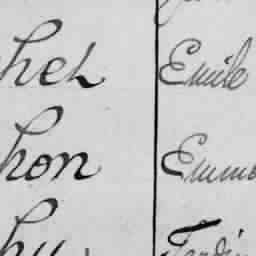 hel Emile
hon Emma
hu Ferdin